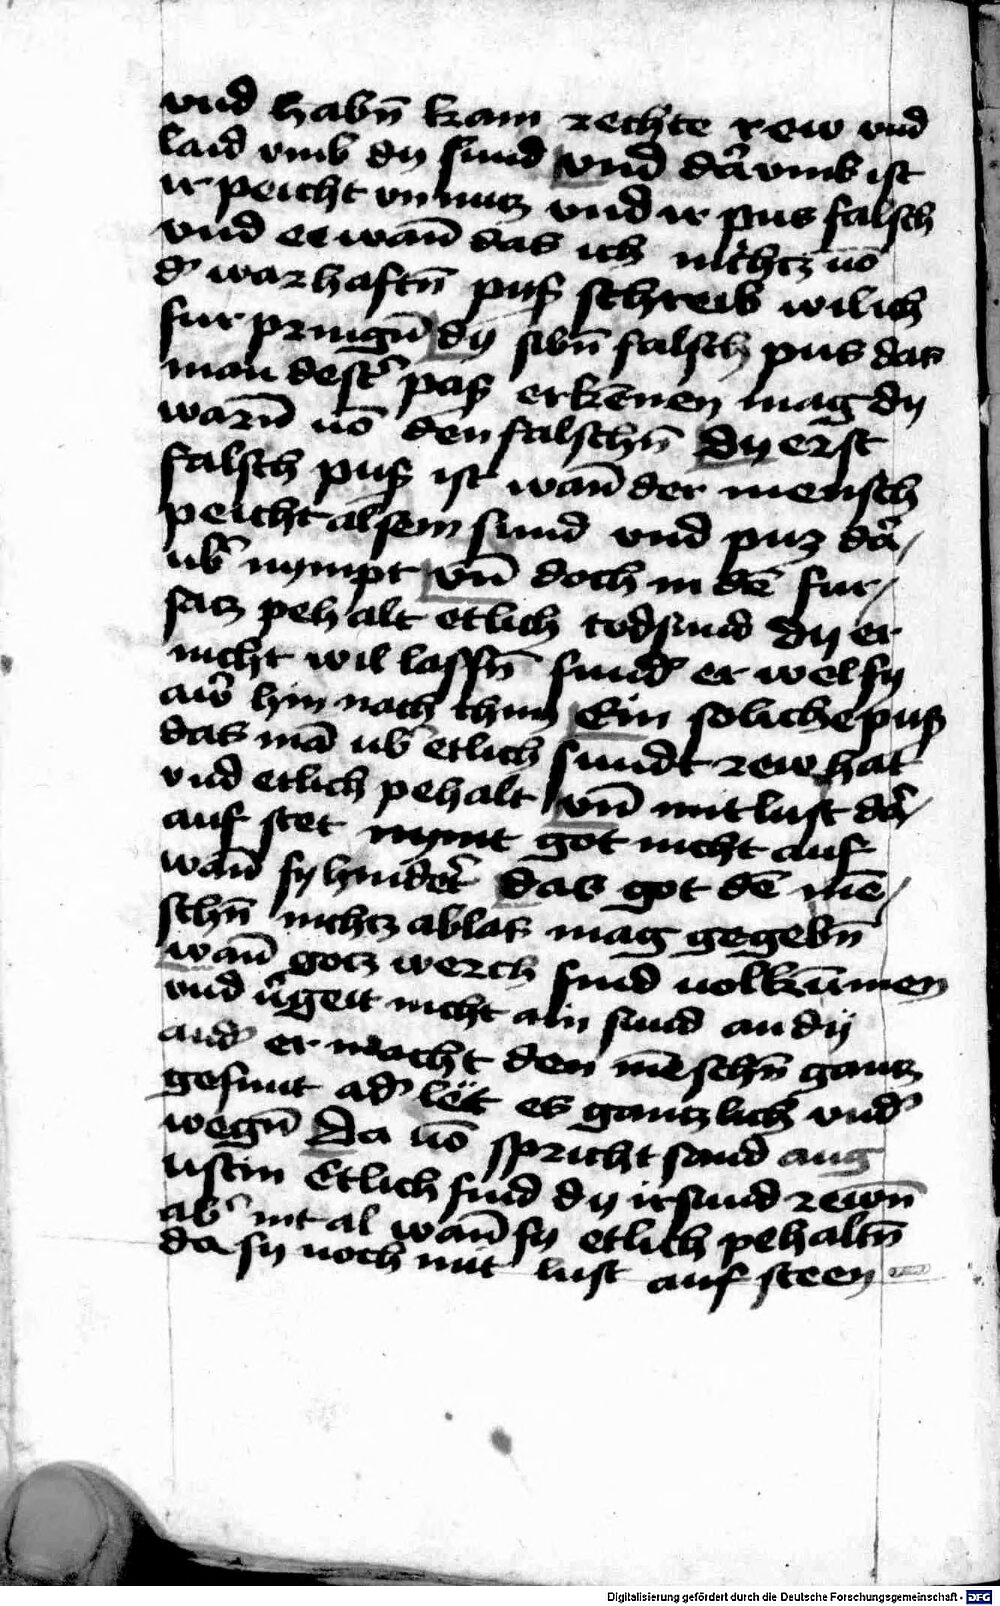 vnd habn̄ kam rechte rew vnd
laid vmb dy sund vnd dar̃vmb ist
ir peicht vnnutz vnd ir pus falsch
vnd ee wan̄ das ich nichtz vō
d' warhaftn̄ puß schreib wil ich
fur pringn̄ dy sibn̄ falsch pus das
man dest' paß erkēnen mag dy
warn̄ vō den falschn̄ Dy erst
falsch puß ist wan̄ der mensch
peicht al sein sund vnd puz dar̃/
vb' nympt vn̄ doch in dē fur/
satz pehalt etlich todsund dy er
nicht wil lassn̄ sund' er wel sy
aw' hin nach thun Ein soliche puß
das mā vb' etlich sundt rew hat
vnd etlich pehalt vn̄ mit lust dar̃/
auf stet nymt got nicht auf
wan̄ sy hindert' das got dē mē/
schn̄ nichtz ablas mag gegebn̄
wan̄ gotz werch sind volkūmen
vnd v'geit nicht ain sund an dy
and' er macht den mēschn̄ gantz
gesunt ad' let es gantzlich vnd'
wegn̄ Da vō spricht sand aug
ustin Etlich sind dy ir sund rewn̄
ab' nit al wan̄ sy etlich pehaltn̄
da sy noch mit lust auf steen
Digitalisierung gefördert durch die Deutsche Forschungsgemeinschaft - DFG